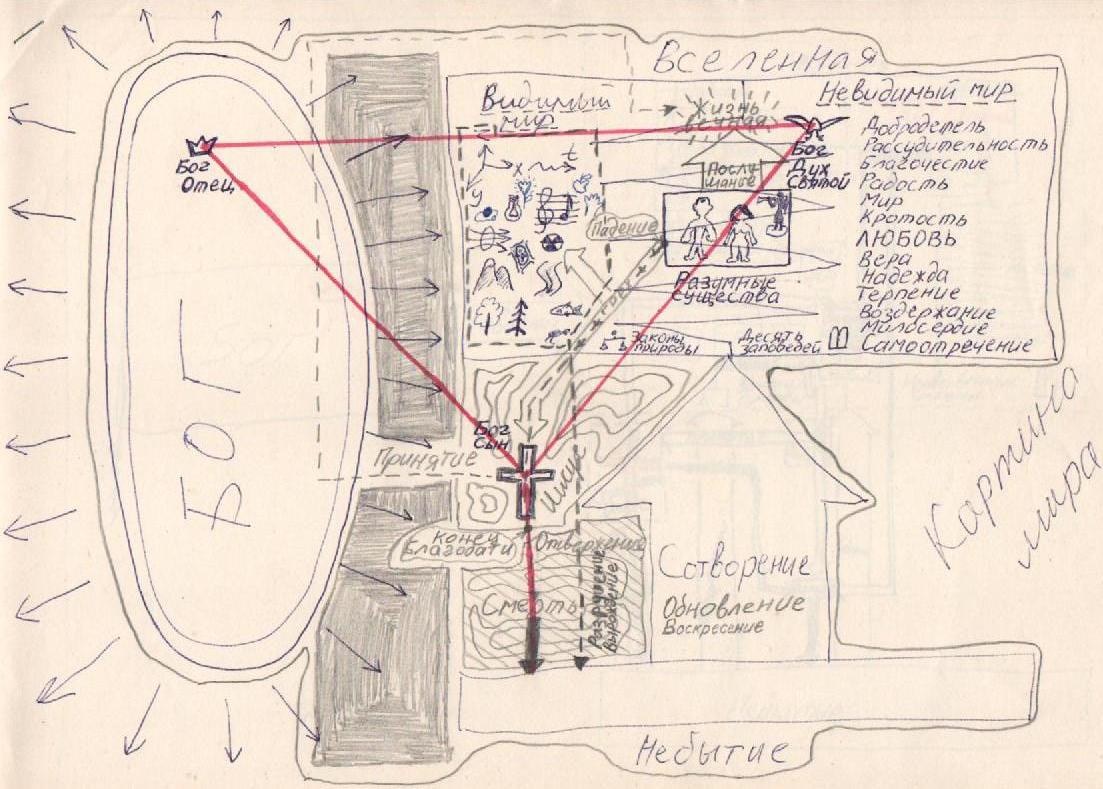 Вселенная
Видимый
мир
Жизнь
вечная
Невидимый мир
Бог
Отец
Бог
Дух
Святой
Послу-
шание
Добродетель
Рассудительность
Благочестие
Радость
Мир
Кротость
ЛЮБОВЬ
Вера
Надежда
Терпение
Воздержание
Милосердие
Самоотречение
x
t
y
Падение
Разумные
существа
Законы
природы
Десять
заповедей
БОГ
Бог
Сын
Принятие
Конец
Благодати
Отвержение
Смерть
Разрушение
Вырождение
Сотворение
Обновление
Воскресение
Небытие
Картина
мира